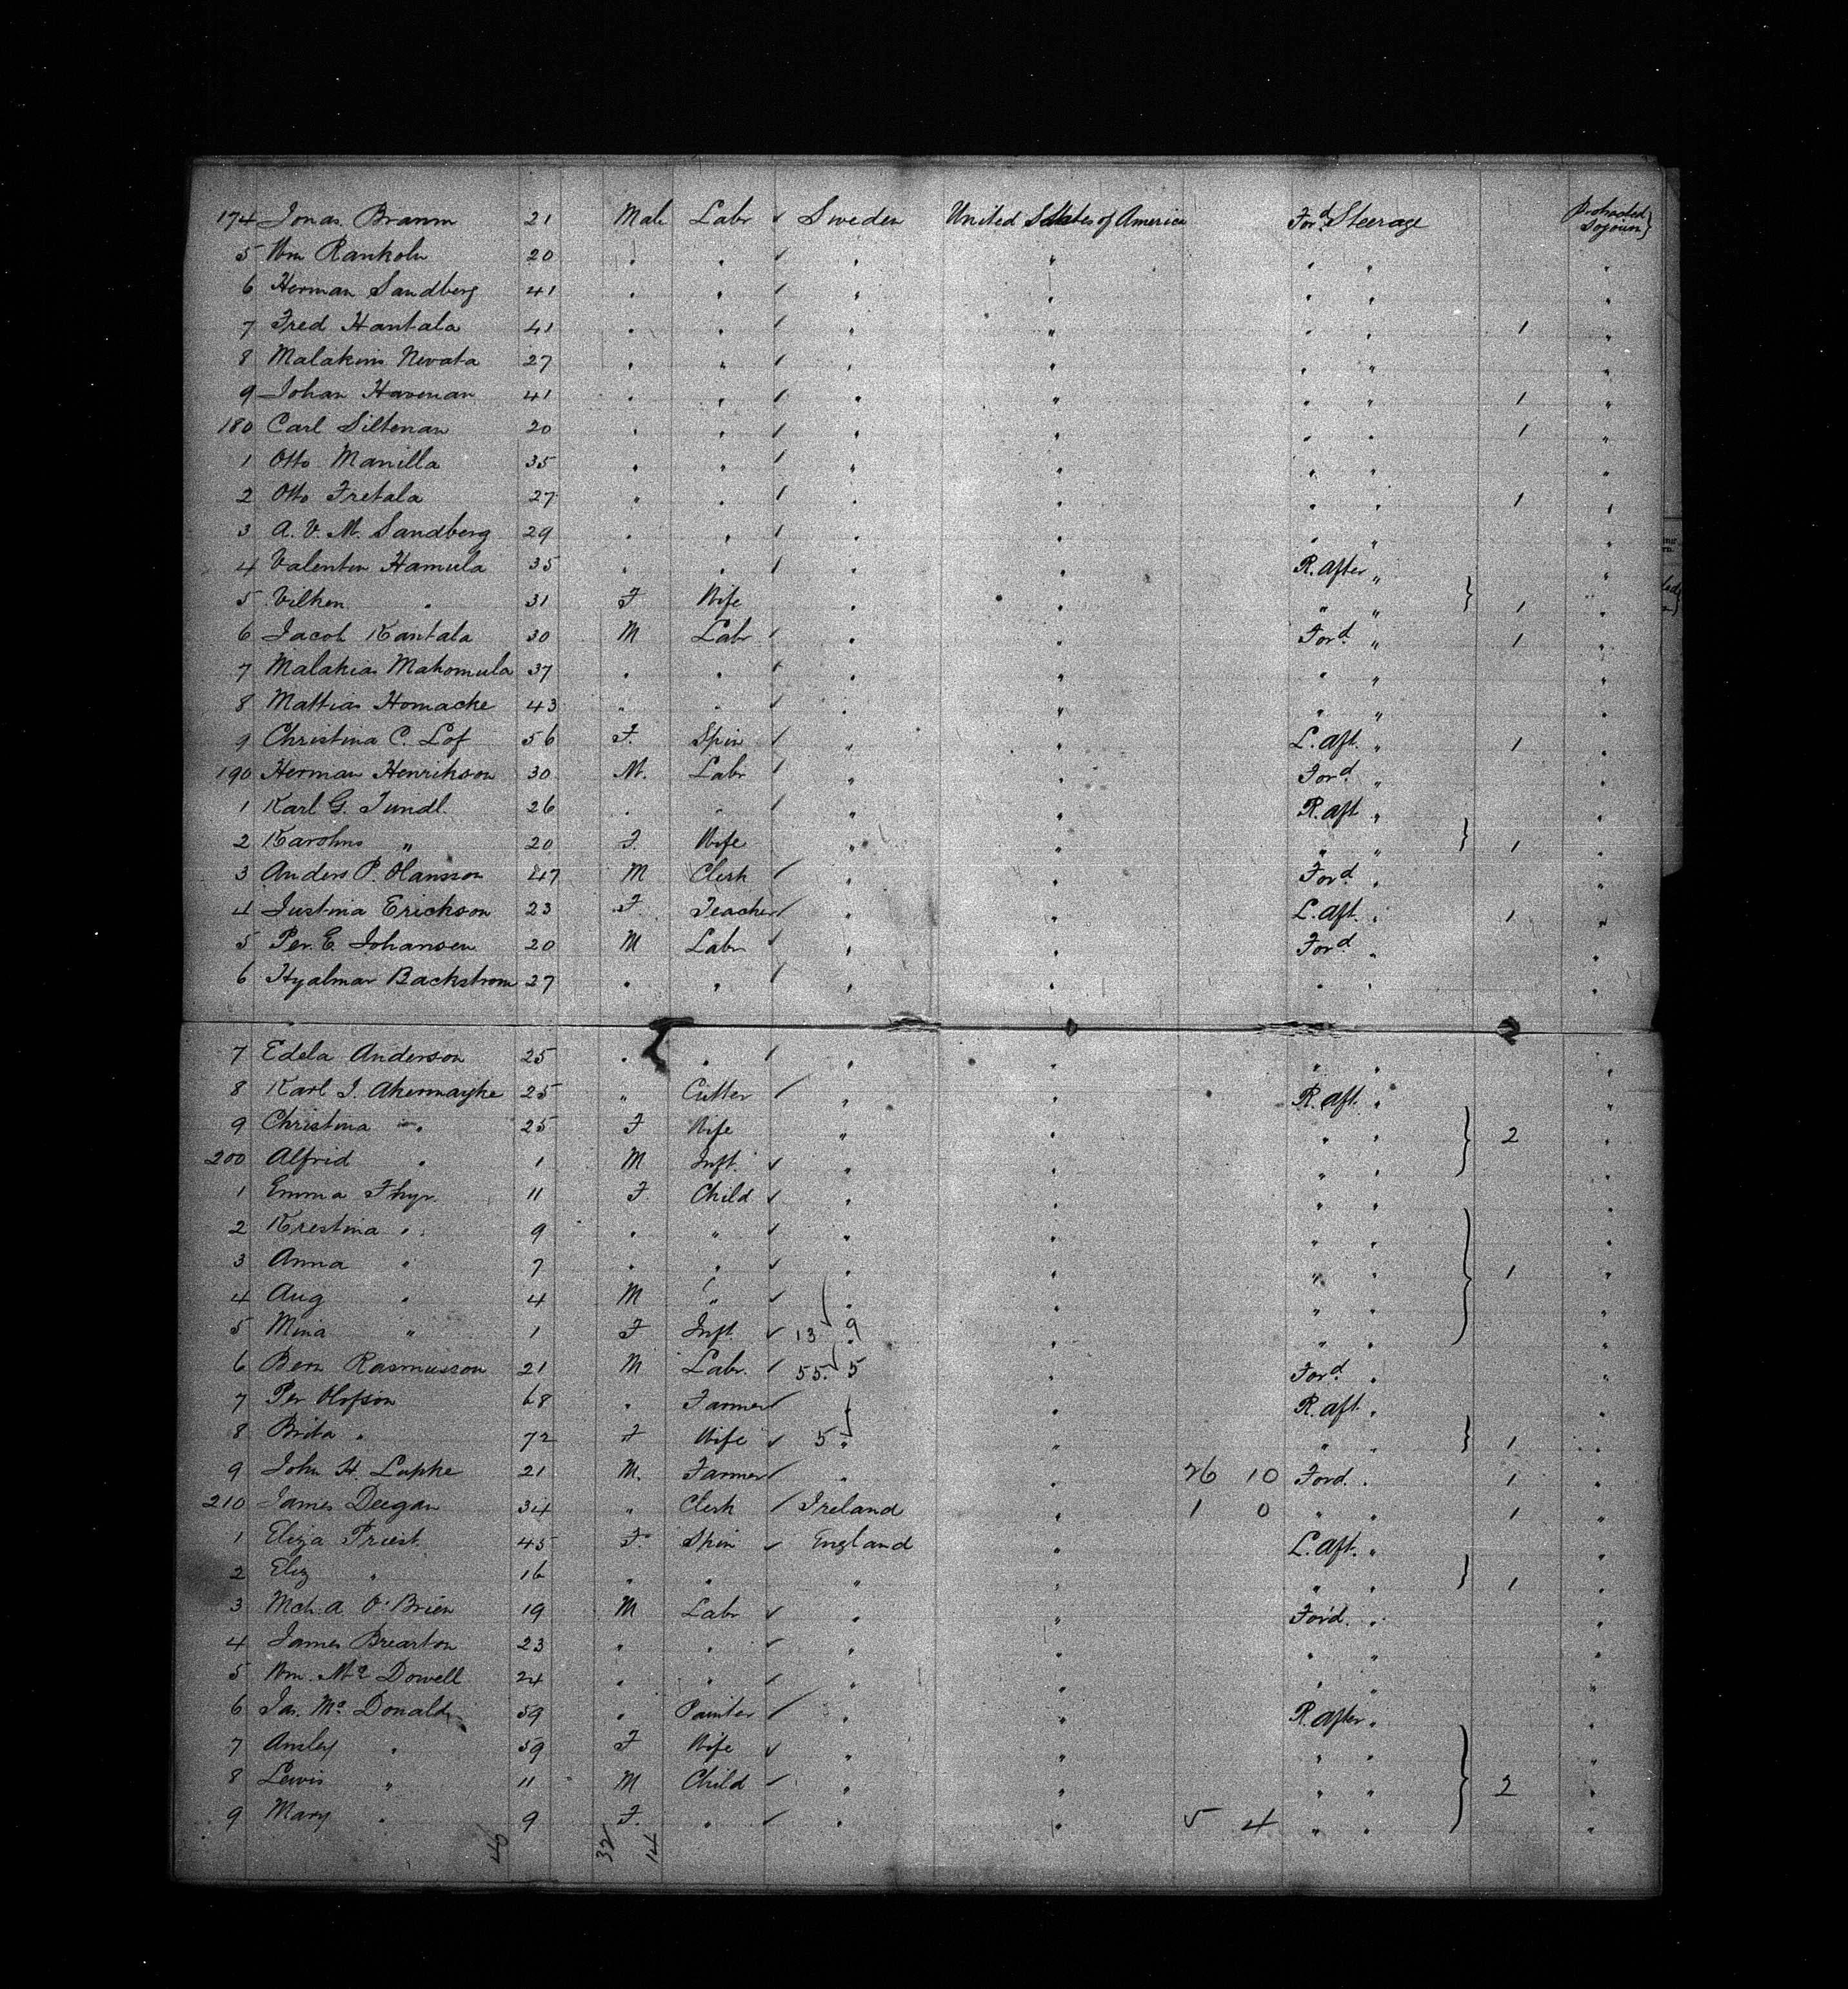 174 Jonas Branm 21 Male Labr ✓ Sweden United States of America For'd Steerage Protracted Sojourn }
5 Wm Rankoln 20 " " ✓ " " " " "
6 Herman Sandberg 41 " " ✓ " " " " "
7 Fred Hantala 41 " " ✓ " " " " 1 "
8 Malakins Nevata 27 " " ✓ " " " " "
9 Johan Havenan 41 " " ✓ " " " " 1 "
180 Carl Siltenan 20 " " ✓ " " " " 1 "
1 Otto Manilla 35 " " ✓ " " " " "
2 Otto Fretala 27 " " ✓ " " " " 1 "
3 A. V. M. Sandberg 29 " " ✓ " " " " "
4 Valentin Hamula 35 " " ✓ " " R. After " "
5 Vilhen " 31 F Wife " " " " } 1 "
6 Jacob Kantala 30 M Labr ✓ " " For'd " 1 "
7 Malakias Mahomula 37 " " ✓ " " " " "
8 Mattias Homacke 43 " " ✓ " " " " "
9 Christina C. Lof 56 F. Spin ✓ " " L. Aft. " 1 "
190 Herman Henrikson 30 M. Labr ✓ " " For'd " "
1 Karl G. Tundl. 26 " " ✓ " " R. Aft " "
2 Karolins " 20 F. Wife " " " " } 1 "
3 Anders P. Hansson 47 M Clerk ✓ " " For'd " "
4 Justina Erickson 23 F. Teacher ✓ " " L. Aft. " 1 "
5 Per. E. Johansen 20 M Labr ✓ " " For'd " "
6 Hyalmar Backstrom 27 " " ✓ " " " " "
7 Edela Anderson 25 " " ✓ " " " " "
8 Karl J. Akermayke 25 " Cutter ✓ " " R. Aft. " "
9 Christina " 25 F Wife " " " " } 2 "
200 Alfrid " 1 M Inft. ✓ " " " " "
1 Emma Thyr 11 F Child ✓ " " " " "
2 Krestina " 9 " " ✓ " " " " "
3 Anna " 7 " " ✓ " " " " } 1 "
4 Aug " 4 M " ✓ " " " " "
5 Mina " 1 F Inft. ✓ 13 9 " " " "
6 Bern Rasmusson 21 M Labr. ✓ 55. 5 " For'd " "
7 Per Olofson 68 " Farmer ✓ " " R. Aft. " "
8 Brita " 72 F Wife ✓ 5 " " " " } 1 "
9 John H. Lupke 21 M. Farmer ✓ " " 26 10 Ford. " 1 "
210 James Deegan 34 " Clerk ✓ Ireland " 1 0 " " 1 "
1 Eliza Priest. 45 F. Spin ✓ England " L. Aft. " "
2 Eliz " 16 " " " " " " } 1 "
3 Mch. A O'Brien 19 M Labr ✓ " " For'd. " "
4 James Brearton 23 " " ✓ " " " " "
5 Wm. Mc Dowell 24 " " ✓ " " " " "
6 Jas. Mc Donald 59 " Painter ✓ " " R. After " "
7 Ansley " 59 F Wife ✓ " " " " "
8 Lewis " 11 M Child ✓ " " " " } 2 "
9 Mary " 9 F. " ✓ " " 5 4 " " "
46 32 14